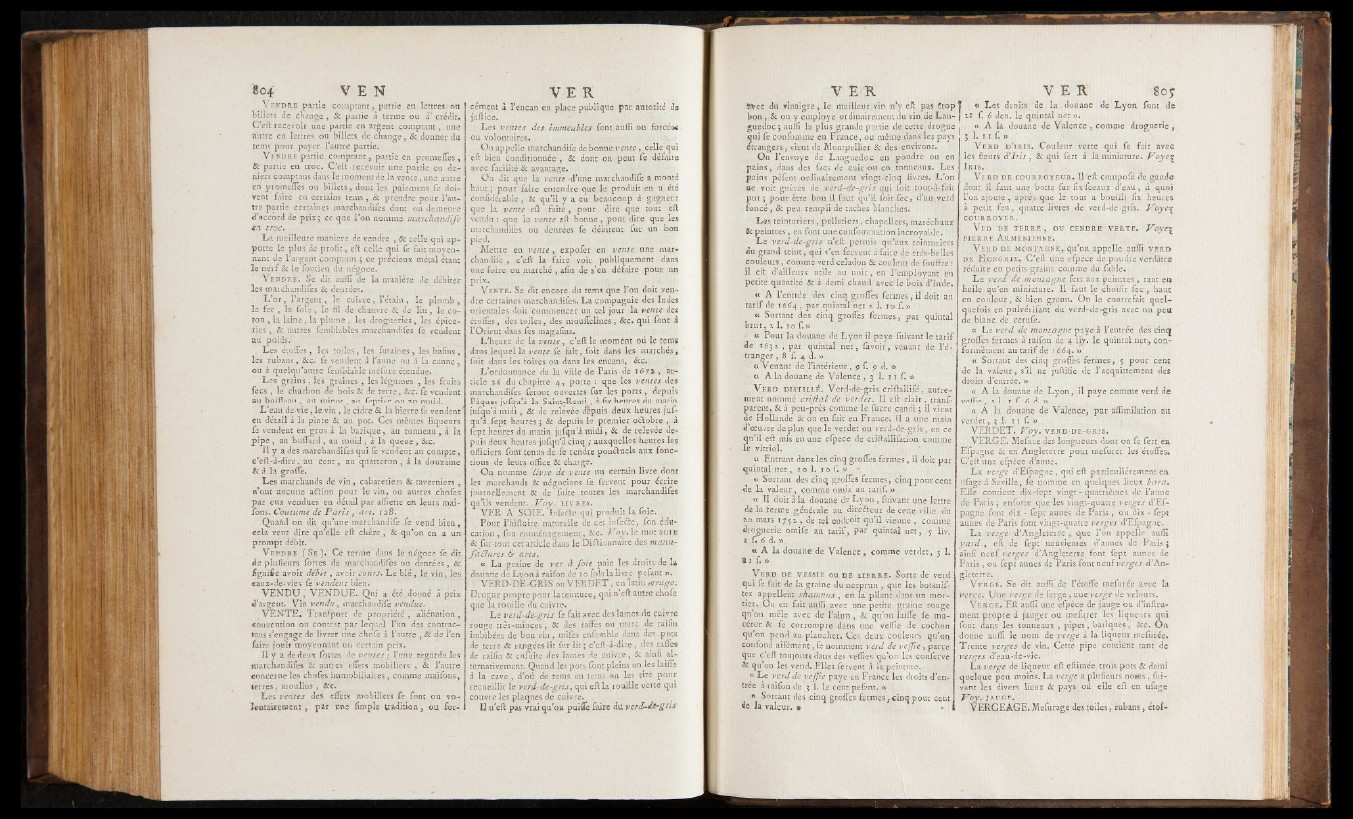 804 V E N
VENDRE partie comptant, partie en lettres ou
billets de change, & partie à terme ou à crédit.
C'est recevoir une partie en argent comptant, une
autre en lettres ou billets de change, & donner du
tems pour payer l'autre partie.
VENDRE partie comptant, partie en promesses,
& partie en troc. C'est recevoir une partie en de-
niers comptans dans le moment de la vente, une autre
en promesses ou billets, dont les paiemens se doi-
vent faire en certains tems, & prendre pour l'au-
tre partie certaines marchandises dont on demeure
d'accord de prix; ce que l'on nomme marchandise
en troc.
La meilleure maniere de vendre, & celle qui ap-
porte le plus de profit, est celle qui se fait moyen-
nant de l'argent comptant; ce précieux métal étant
le nerf & le soutien du négoce.
VENDRE. Se dit aussi de la manière de débiter
les marchandises & denrées.
L'or, l'argent, le cuivre, l'étain, le plomb,
le fer, la soie, le fil de chanvre & de lin, le co-
ton, la laine, la plume, les drogueries, les épice-
ries, & autres semblables marchandises se vendent
au poids.
Les étoffes, les toiles, les futaines, les basins,
les rubans, &c. se vendent à l'aune ou à la canne,
ou à quelqu'autre semblable mesure étendue.
Les grains, les graines, les légumes, les fruits
secs, le charbon de bois & de terre, &c. se vendent
au boisseau, au minot, au septier ou au muid.
L'eau de-vie, le vin, le cidre & la bierre se vendent
en détail à la pinte & au pot. Ces mêmes liqueurs
se vendent en gros à la barique, au tonneau, à la
pipe, au bussard, au muid, à la queue, &c.
Il y a des marchandises qui se vendent au compte,
c'est-à-dire, au cent, au quarteron, à la douzaine
& à la grosse.
Les marchands de vin, cabaretiers & taverniers,
n'ont aucune action pour le vin, ou autres choses
par eux vendues en détail par assiette en leurs mai-
sons. Coutume de Paris, art. 128.
Quand on dit qu'une marchandise se vend bien,
cela veut dire qu'elle est chère, & qu'on en a un
prompt débit.
VENDRE (SE). Ce terme dans le négoce se dit
de plusieurs sortes de marchandises ou denrées, &
signifie avoir débit, avoir cours. Le blé, le vin, les
eaux-de-vies se vendent bien.
VENDU, VENDUE. Qui a été donné à prix
d'argent. Vin vendu, marchandise vendue.
VENTE. Transport de propriété, aliénation,
convention ou contrat par lequel l'un des contrac-
tans s'engage de livrer une chose à l'autre, & de l'en
faire jouir moyennant un certain prix.
Il y a de deux sortes de ventes; l'une regarde les
marchandises & autres effets mobiliers, & l'autre
concerne les choses immobiliaires, comme maisons,
terres, moulins, &c.
Les ventes des effets mobiliers se font ou vo-
lontairement, par une simple tradition, ou for-
V E R
cément à l'encan en place publique par autorité de
justice.
Les ventes des immeubles sont aussi ou forcées
ou volontaires.
On appelle marchandise de bonne vente, celle qui
est bien conditionnée, & dont on peut se défaire
avec facilité & avantage.
On dit que la vente d'une marchandise a monté
haut; pour faire entendre que le produit en a été
considérable, & qu'il y a eu beaucoup à gagner:
que la vente est faite, pour dire que tout est
vendu: que la vente est bonne, pour dire que les
marchandises ou denrées se débitent sur un bon
pied.
Mettre en vente, exposer en vente une mar-
chandise, c'est la faire voir publiquement dans
une foire ou marché, afin de s'en défaire pour un
prix.
VENTE. Se dit encore du tems que l'on doit ven-
dre certaines marchandises. La compagnie des Indes
orientales doit commencer un tel jour la vente des
étoffes, des toiles, des mousselines, &c. qui sont à
l'Orient dans ses magasins.
L'heure de la vente, c'est le moment où le tems
dans lequel la vente se fait, soit dans les marchés,
soit dans les foires ou dans les encans, &c.
L'ordonnance de la ville de Paris de 1672, ar-
ticle 26 du chapitre 4, porte: que les ventes des
marchandises seront ouvertes sur les ports, depuis
Pâques jusqu'à la Saint-Remi, à six heures du matin
jusqu'à midi, & de relevée depuis deux heures jus-
qu'à sept heures; & depuis le premier octobre, à
sept heures du matin jusqu'à midi, & de relevée de-
puis deux heures jusqu'à cinq; auxquelles heures les
officiers sont tenus de se rendre ponctuels aux fonc-
tions de leurs office & charge.
On nomme livre de vente un certain livre dont
les marchands & négocians se servent pour écrire
journellement & de suite toutes les marchandises
qu'ils vendent. Voy. LIVRES.
VER A SOIE. Insecte qui produit la soie.
Pour l'histoire naturelle de cet insecte, son édu-
cation, son emménagement, &c. Voy. le mot SOIE
& sur-tout cet article dans le Dictionnaire des manu-
factures & arts.
« La graine de ver à soie paie les droits de la
douane de Lyon à raison de 10 sols la livre pesant ».
VERD-DE-GRIS ou VERDET, en latin ærugo;
Drogue propre pour la teinture, qui n'est autre chose
que la rouille du cuivre.
Le verd-de-gris se fait avec des lames de cuivre
rouge très-minces, & des rafles ou marc de raisin
imbibées de bon vin, mises ensemble dans des pots
de terre & rangées lit sur lit; c'est-à-dire, des rafles
de raisin & ensuite des lames de cuivre, & ainsi al-
ternativement. Quand les pots sont pleins on les laisse
à la cave, d'où de tems en tems on les tire pour
recueillir le verd-de-gris, qui est la rouille verte qui
couvre les plaques de cuivre.
Il n'est pas vrai qu'on puisse faire du verd-de-gris
V E R
avec du vinaigre, le meilleur vin n'y est pas trop
bon, & on y employe ordinairement du vin de Lan-
guedoc; aussi la plus grande partie de cette drogue
qui se consomme en France, ou même dans les pays
étrangers, vient de Montpellier & des environs.
On l'envoye de Languedoc en poudre ou en
pains, dans des sacs de cuir ou en tonneaux. Les
pains pésent ordinairement vingt-cinq livres. L'on
ne voit guères de verd-de-gris qui soit tout-à-fait
pur; pour être bon il faut qu'il soit sec, d'un verd
foncé, & peu rempli de taches blanches.
Les teinturiers, pelletiers, chapeliers, maréchaux
& peintres, en font une consommation incroyable.
Le verd-de-gris n'est permis qu'aux teinturiers
du grand teint, qui s'en servent à faire de très-belles
couleurs, comme verd céladon & couleur de souffre:
il est d'ailleurs utile au noir, en l'employant en
petite quantité & à demi chaud avec le bois d'Inde.
« A l'entrée des cinq grosses fermes, il doit au
tarif de 1664, par quintal net 2 l. 10 s. »
« Sortant des cinq grosses fermes, par quintal
brut, 2 l. 10 s. »
« Pour la douane de Lyon il paye suivant le tarif
de 1632, par quintal net; savoir, venant de l'é-
tranger, 8 s. 4 d. »
« Venant de l'intérieur, 9 s. 9 d. »
« A la douane de Valence, 3 l. 11 s. »
VERD DISTILLÉ. Verd-de-gris cristallisé, autre-
ment nommé cristal de verdet. Il est clair, trans-
parent, & à peu-près comme le sucre candi; il vient
de Hollande & on en fait en France. Il a une main
d'œuvre de plus que le verdet ou verd-de-gris, en ce
qu'il est mis en une espece de cristallisation comme
le vitriol.
« Entrant dans les cinq grosses fermes, il doit par
quintal net, 10 l. 10 s. »
« Sortant des cinq grosses fermes, cinq pour cent
de la valeur, comme omis au tarif. »
« Il doit à la douane de Lyon, suivant une lettre
de la ferme générale au directeur de cette ville du
20 mars 1752, de tel endroit qu'il vienne, comme
droguerie omise au tarif, par quintal net, 5 liv.
2 s. 6 d. »
« A la douane de Valence, comme verdet, 3 l.
11 s. »
VERD DE VESSIE OU DE LIERRE. Sorte de verd
qui se fait de la graine du nerprun, que les botanis-
tes appellent rhamnus, en la pilant dans un mor-
tier. On en fait aussi avec une petite graine rouge
qu'on mêle avec de l'alun, & qu'on laisse se ma-
cérer & se corrompre dans une vessie de cochon
qu'on pend au plancher. Ces deux couleurs qu'on
confond aisément, se nomment verd de vessie, parce
que c'est toujours dans des vessies qu'on les conserve
& qu'on les vend. Elles servent à la peinture.
« Le verd de vessie paye en France les droits d'en-
trée à raison de 3 l. le cent pesant. »
« Sortant des cinq grosses fermes, cinq pour cent
de la valeur. »
V E R 805
« Les droits de la douane de Lyon sont de
11 s. 6 den. le quintal net ».
« A la douane de Valence, comme droguerie,
3 l. 11 s. »
VERD D'IRIS. Couleur verte qui se fait avec
les fleurs d'Iris, & qui sert à la miniature. Voyez
IRIS.
VERD DE COURROYEUR. Il est composé de gaude
dont il faut une botte sur six sceaux d'eau, à quoi
l'on ajoute, après que le tout a bouilli six heures
à petit feu, quatre livres de verd-de gris. Voyez
COURROYER.
VED DE TERRE, OU CENDRE VERTE. Voyez
PIERRE ARMENIENNE.
VERD DE MONTAGNE, qu'on appelle aussi VERD
DE HONGRIE. C'est une espéce de poudre verdâtre
réduite en petits grains comme du sable.
Le verd de montagne sert aux peintres, tant en
huile qu'en miniature. Il faut le choisir sec, haut
en couleur, & bien grenu. On le contrefait quel-
quefois en pulvérisant du verd-de-gris avec un peu
de blanc de céruse.
« Le verd de montagne paye à l'entrée des cinq
grosses fermes à raison de 4 liv. le quintal net, con-
formément au tarif de 1664. »
« Sortant des cinq grosses fermes, 5 pour cent
de la valeur, s'il ne justifie de l'acquittement des
droits d'entrée. »
« A la douane de Lyon, il paye comme verd de
vessie,
« A la douane de Valence, par assimilation au
verdet, 3 l. 11 s. »
VERDET. Voy. VERD-DE-GRIS.
VERGE. Mesure des longueurs dont on se sert en
Espagne & en Angleterre pour mesurer les étoffes.
C'est une espéce d'aune.
La verge d'Espagne, qui est particulièrement en
usage à Seville, se nomme en quelques lieux bara.
Elle contient dix-sept vingt-quatrièmes de l'aune
de Paris; ensorte que les vingt-quatre verges d'Es-
pagne font dix-sept aunes de Paris, ou dix-sept
aunes de Paris font vingt-quatre verges d'Espagne.
La verge d'Angleterre, que l'on appelle aussi
yard, est de sept neuviemes d'aunes de Paris;
ainsi neuf verges d'Angleterre font sept aunes de
Paris, ou sept aunes de Paris font neuf verges d'An-
gleterre.
VERGE. Se dit aussi de l'étoffe mesurée avec la
verge. Une verge de serge, une verge de velours.
VERGE. Est aussi une espéce de jauge ou d'instru-
ment propre à jauger ou mesurer les liqueurs qui
sont dans les tonneaux, pipes, bariques, &c. On
donne aussi le nom de verge à la liqueur mesurée.
Trente verges de vin. Cette pipe contient tant de
verges d'eau-de-vie.
La verge de liqueur est estimée trois pots & demi
quelque peu moins. La verge a plusieurs noms, sui-
vant les divers lieux & pays où elle est en usage
Voy. JAUGE.
VERGEAGE. Mesurage des toiles, rubans, étof-